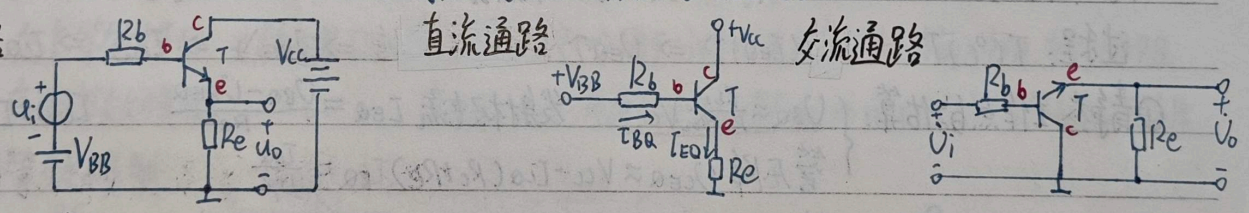 Rb
b
c
T
e
Vcc
ui
+
-
VBB
Re
+
uo
-
直流通路
+VBB
Rb
b
c
+Vcc
T
e
IBQ
IEQ
Re
交流通路
Rb
b
e
T
c
+
U̇i
-
Re
+
U̇o
-